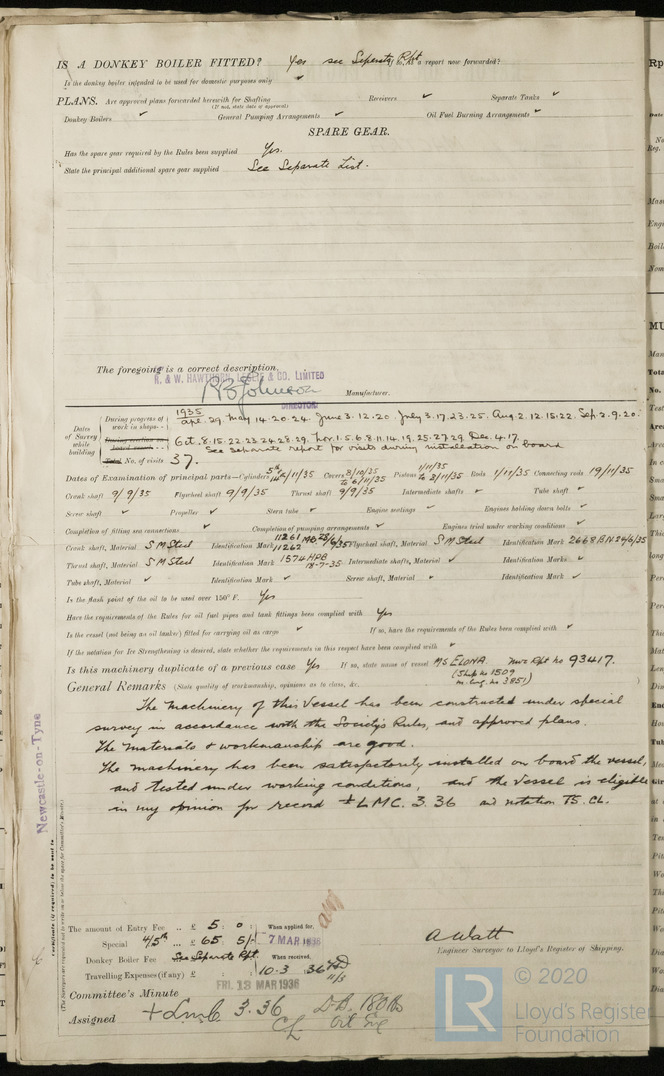 IS A DONKEY BOILER FITTED? Yes see Separate Rpt. If so, is a report now forwarded?
Is the donkey boiler intended to be used for domestic purposes only ✓
PLANS. Are approved plans forwarded herewith for Shafting Receivers ✓ Separate Tanks ✓
(If not, state date of approval)
Donkey Boilers ✓ General Pumping Arrangements ✓ Oil Fuel Burning Arrangements ✓
SPARE GEAR.
Has the spare gear required by the Rules been supplied Yes.
State the principal additional spare gear supplied See Separate List.
The foregoing is a correct description,
R. & W. HAWTHORN, LESLIE & CO. LIMITED
RB Johnson Manufacturer.
DIRECTOR
Dates of Survey while building
During progress of work in shops - - 1935 Apr. 29. May 14. 20. 24. June 3. 12. 20. July 3. 17. 23. 25. Aug. 2. 12. 15. 22. Sep. 2. 9. 20.
During erection on board vessel - - Oct. 8. 15. 22. 23. 24. 28. 29. Nov. 1. 5. 6. 8. 11. 14. 19. 25. 27. 29. Dec. 4. 17.
See Separate report for visits during installation on board
Total No. of visits 37.
Dates of Examination of principal parts—Cylinders 5th 14th/11/35 Covers 8/10/35 to 6/11/35 Pistons 1/11/35 to 2/11/35 Rods 1/11/35 Connecting rods 19/11/35
Crank shaft 9/9/35 Flywheel shaft 9/9/35 Thrust shaft 9/9/35 Intermediate shafts ✓ Tube shaft ✓
Screw shaft ✓ Propeller ✓ Stern tube ✓ Engine seatings ✓ Engines holding down bolts ✓
Completion of fitting sea connections ✓ Completion of pumping arrangements ✓ Engines tried under working conditions ✓
Crank shaft, Material S M Steel Identification Mark 11261 11262 Flywheel shaft, Material S M Steel Identification Mark 2668 BN 24/6/35
Thrust shaft, Material S M Steel Identification Mark 1574 HPB 18-7-35 Intermediate shafts, Material ✓ Identification Marks ✓
Tube shaft, Material ✓ Identification Mark ✓ Screw shaft, Material ✓ Identification Mark ✓
Is the flash point of the oil to be used over 150° F. Yes
Have the requirements of the Rules for oil fuel pipes and tank fittings been complied with Yes
Is the vessel (not being an oil tanker) fitted for carrying oil as cargo ✓ If so, have the requirements of the Rules been complied with ✓
If the notation for Ice Strengthening is desired, state whether the requirements in this respect have been complied with ✓
Is this machinery duplicate of a previous case Yes If so, state name of vessel MS ELONA. Nwc Rpt No 93417.
(Ship No 1509
M. Eng. No 3851)
General Remarks (State quality of workmanship, opinions as to class, &c.
The machinery of this vessel has been constructed under special
survey in accordance with the Society's Rules, and approved plans.
The materials & workmanship are good.
The machinery has been satisfactorily installed on board the vessel,
and tested under working conditions, and the vessel is eligible
in my opinion for record + LMC. 3.36 and notation TS. CL.
Newcastle-on-Tyne
Certificate (if required) to be sent to
(The Surveyors are requested not to write on or below the space for Committee's Minute.)
The amount of Entry Fee .. £ 5 : 0 When applied for,
Special 4/5th ... £ 65 5/- 7 MAR 1936
Donkey Boiler Fee See Separate Rpt. When received,
Travelling Expenses (if any) £ 10.3 36 11/3
A Watt
Engineer Surveyor to Lloyd's Register of Shipping.
Committee's Minute FRI. 13 MAR 1936
Assigned + Lmc 3.36 D.B. 180 lb
CL Oil Eng
LR © 2020
Lloyd's Register
Foundation